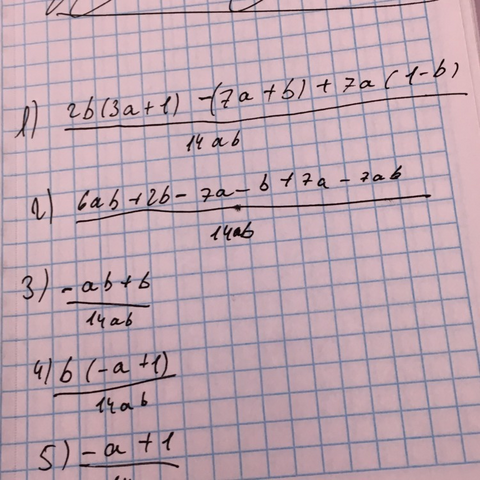 1) 2b(3a+1) -(7a+b) + 7a(1-b)
14ab
2) 6ab+2b-7a-b+7a-7ab
14ab
3) -ab+b
14ab
4) b(-a+1)
14ab
5) -a+1